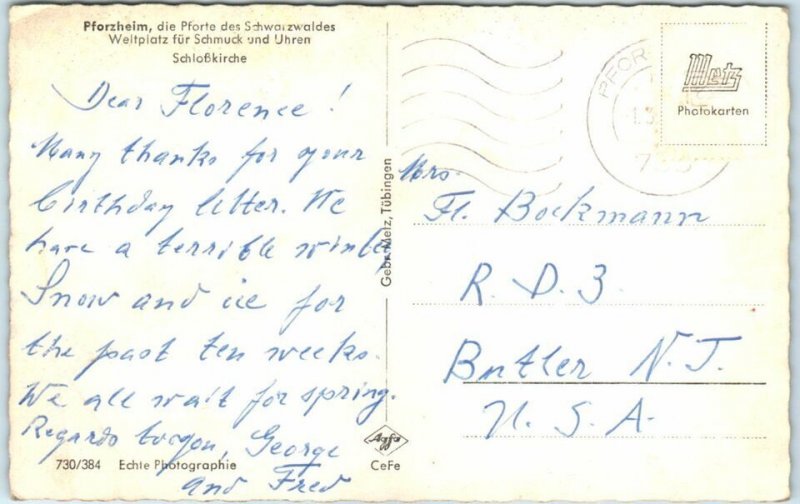 Pforzheim, die Pforte des Schwarzwaldes
Weltplatz für Schmuck und Uhren
Schloßkirche
Dear Florence!
Many thanks for your
birthday letter. We
have a terrible winter,
Snow and ice for
the past ten weeks.
We all wait for spring.
Regards to you, George
and Fred
730/384 Echte Photographie
Gebr. Metz, Tübingen
Agfa
CeFe
PFOR
Metz
Photokarten
Mrs.
Fl. Bockmann
R. D. 3.
Butler N. J.
U. S. A.